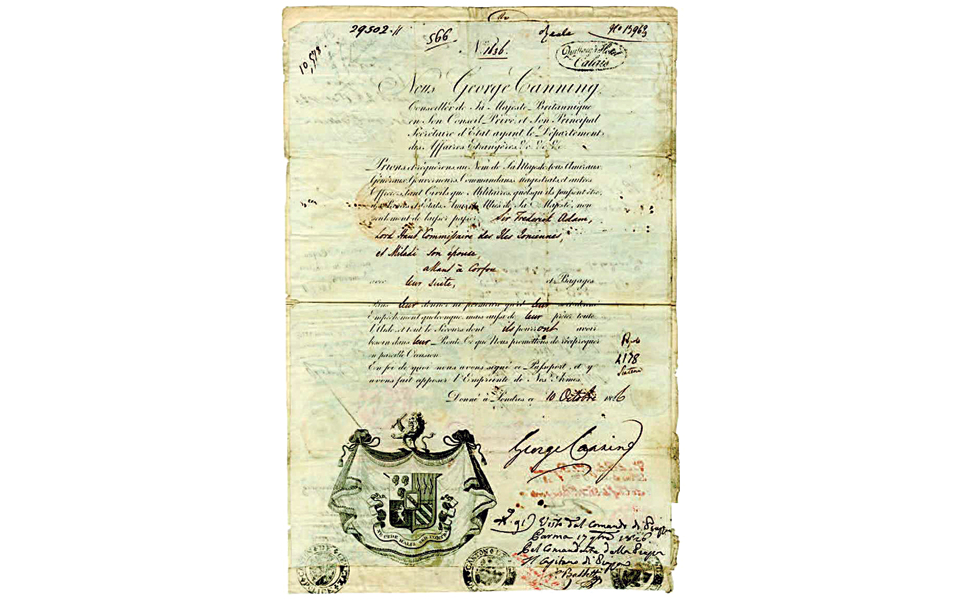 29502
566
No 13963
No 1636.
10,593
Calais
Nous George Canning,
Conseiller de Sa Majesté Britannique
en Son Conseil Privé, et Son Principal
Secrétaire d'Etat ayant le Département
des Affaires Etrangères &c. &c. &c.
Prions et requérons au Nom de Sa Majesté tous Amiraux
Généraux, Gouverneurs, Commandans, Magistrats, et autres
Officiers, tant Civils que Militaires, quelqu'ils puissent être,
Etats, Amis, de Sa Majesté, non
seulement de laisser passer Sir Frederick Adam,
Lord Haut Commissaire des Iles Ioniennes,
et Miladi son épouse,
allant à Corfou
avec leur Suite, et Bagages
leur donner ni permettre qu'il leur soit donné
Empêchement quelconque, mais aussi de leur prêter toute
l'Aide, et tout le Secours dont ils pourront avoir
besoin dans leur Route, Ce que Nous promettons de réciproquer
en pareille Occasion
En foi de quoi nous avons signé ce Passeport, et y
avons fait apposer l'Empreinte de Nos Armes
Donné à Londres ce 10 Octobre 1826
4178
George Canning
Visto dal Comando di Piazza
Parma 17 1826
Il Capitano di Piazza